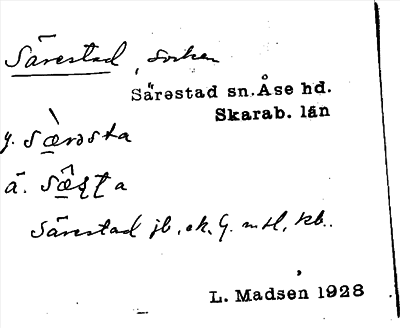 Särestad, socken
Särestad sn. Åse hd.
Skarab. län
y. sæ̀rəsta
ä.
Särestad jb, ek, G. mtl, kb.
L. Madsen 1928